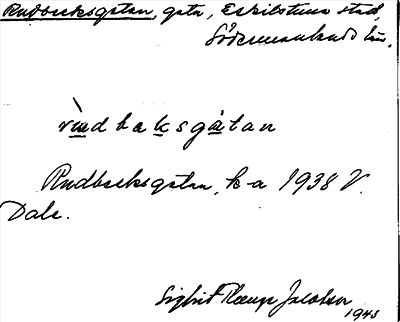 Rudbecksgatan, gata, Eskilstuna stad,
Södermanlands län.
rudbaksgatan
Rudbecksgatan, k-a 1938 V.
Dale.
Sigbrit Plænge Jacobson
1943